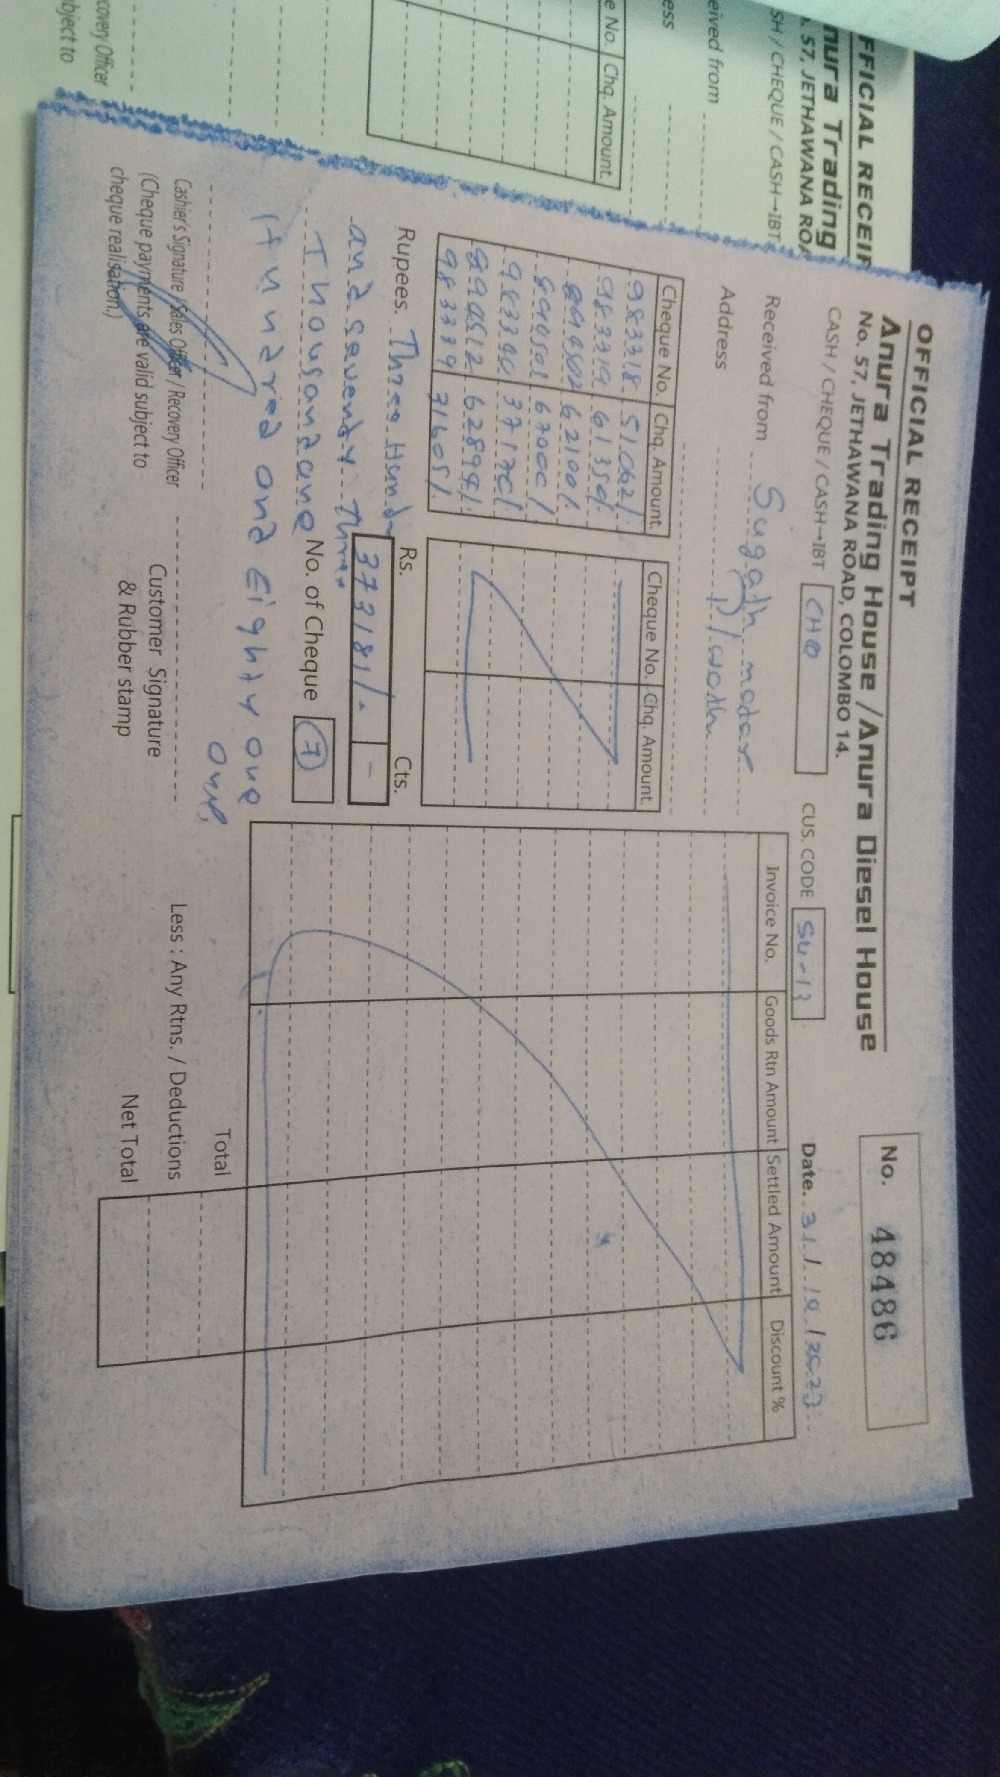 OFFICIAL RECEIPT
Anura Trading House / Anura Diesel House
No. 57, JETHAWANA ROAD, COLOMBO 14.
No. 48486
CASH / CHEQUE / CASH→IBT CHQ
CUS. CODE SU-13
Date. 31 / 10 / 2023
Received from Sugath motor
Address P/wath
Cheque No. Chq. Amount.
983318 51062/.
983319 61350/.
894502 62100/.
894501 67000/
983340 37170/
894512 62894/.
983339 31605/.
Cheque No. Chq. Amount.
Rupees. Three Hund
and seventy Three
Thousand one
Hundred and Eighty one
only
Rs. Cts.
373181/- -
No. of Cheque 7
Invoice No. Goods Rtn Amount Settled Amount Discount %
Total
Less : Any Rtns. / Deductions
Net Total
Cashier's Signature / Sales Officer / Recovery Officer
(Cheque payments are valid subject to
cheque realisation.)
Customer Signature
& Rubber stamp
FFICIAL RECEIP
nura Trading
57, JETHAWANA ROA
SH / CHEQUE / CASH→IBT
eived from
ess
e No. Chq. Amount.
covery Officer
bject to